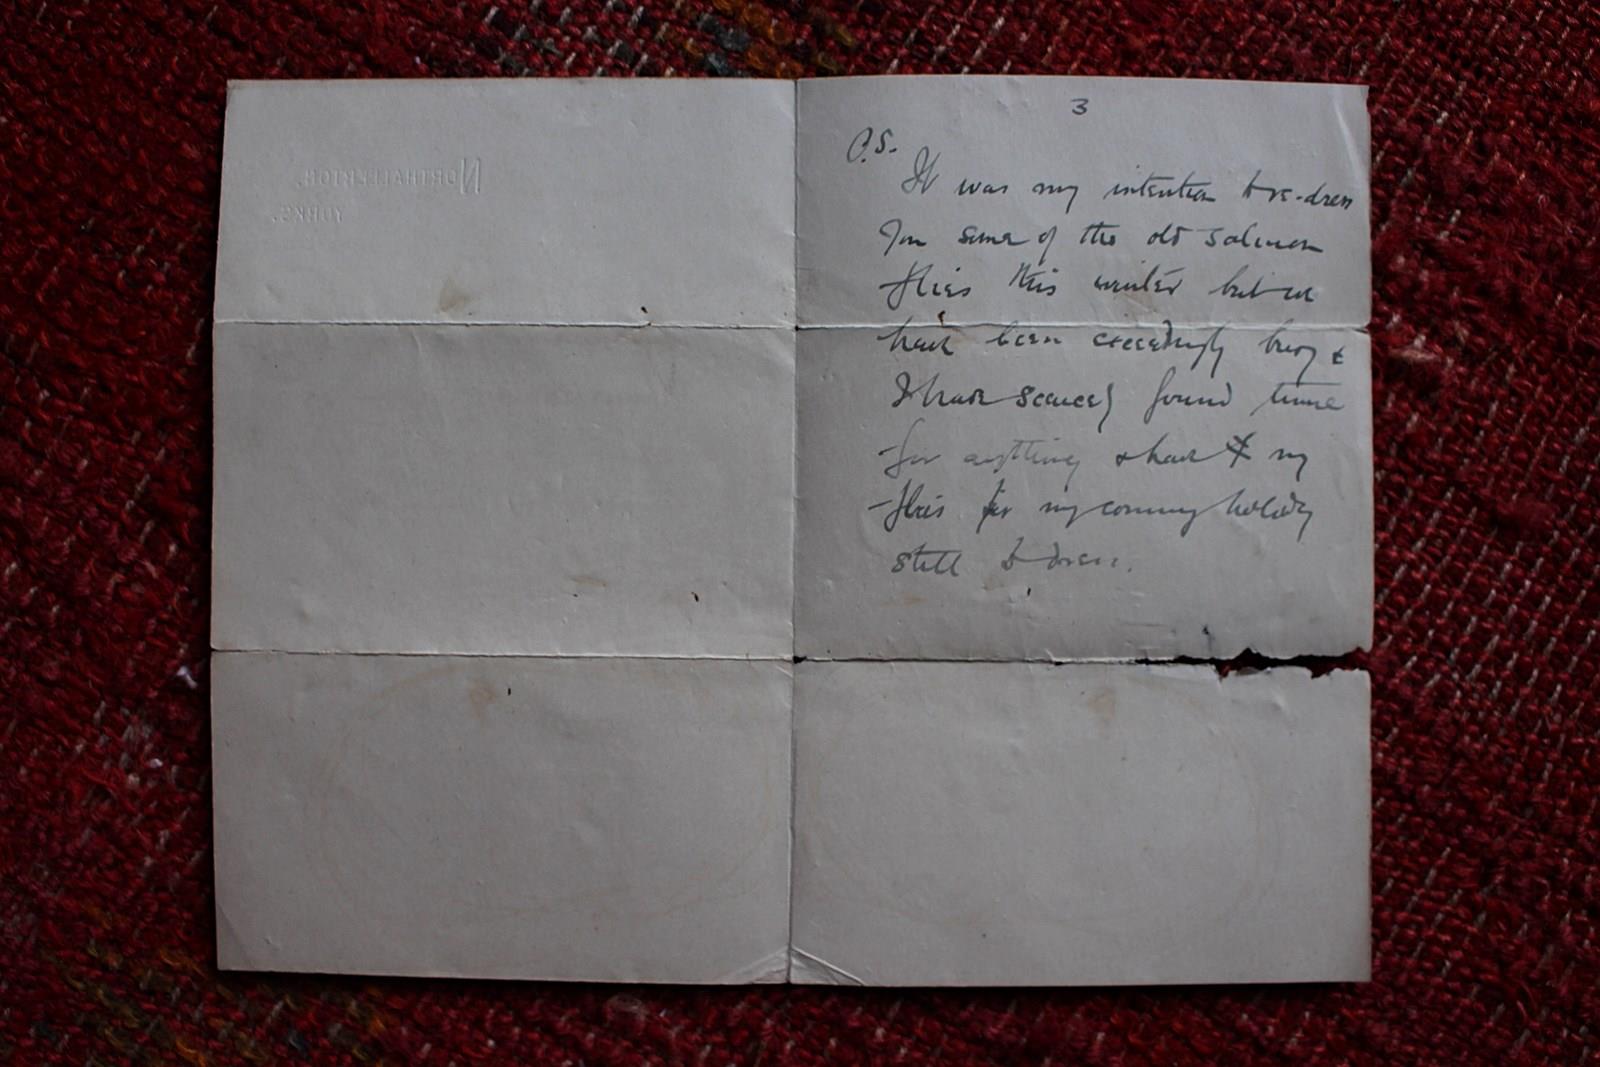 NORTHALLERTON.
YORKS.
3
P.S.
It was my intention to re-dress
for some of the old salmon
flies this winter but we
have been exceedingly busy &
I have scarcely found time
for anything & have my
flies for my coming holiday
still to dress.